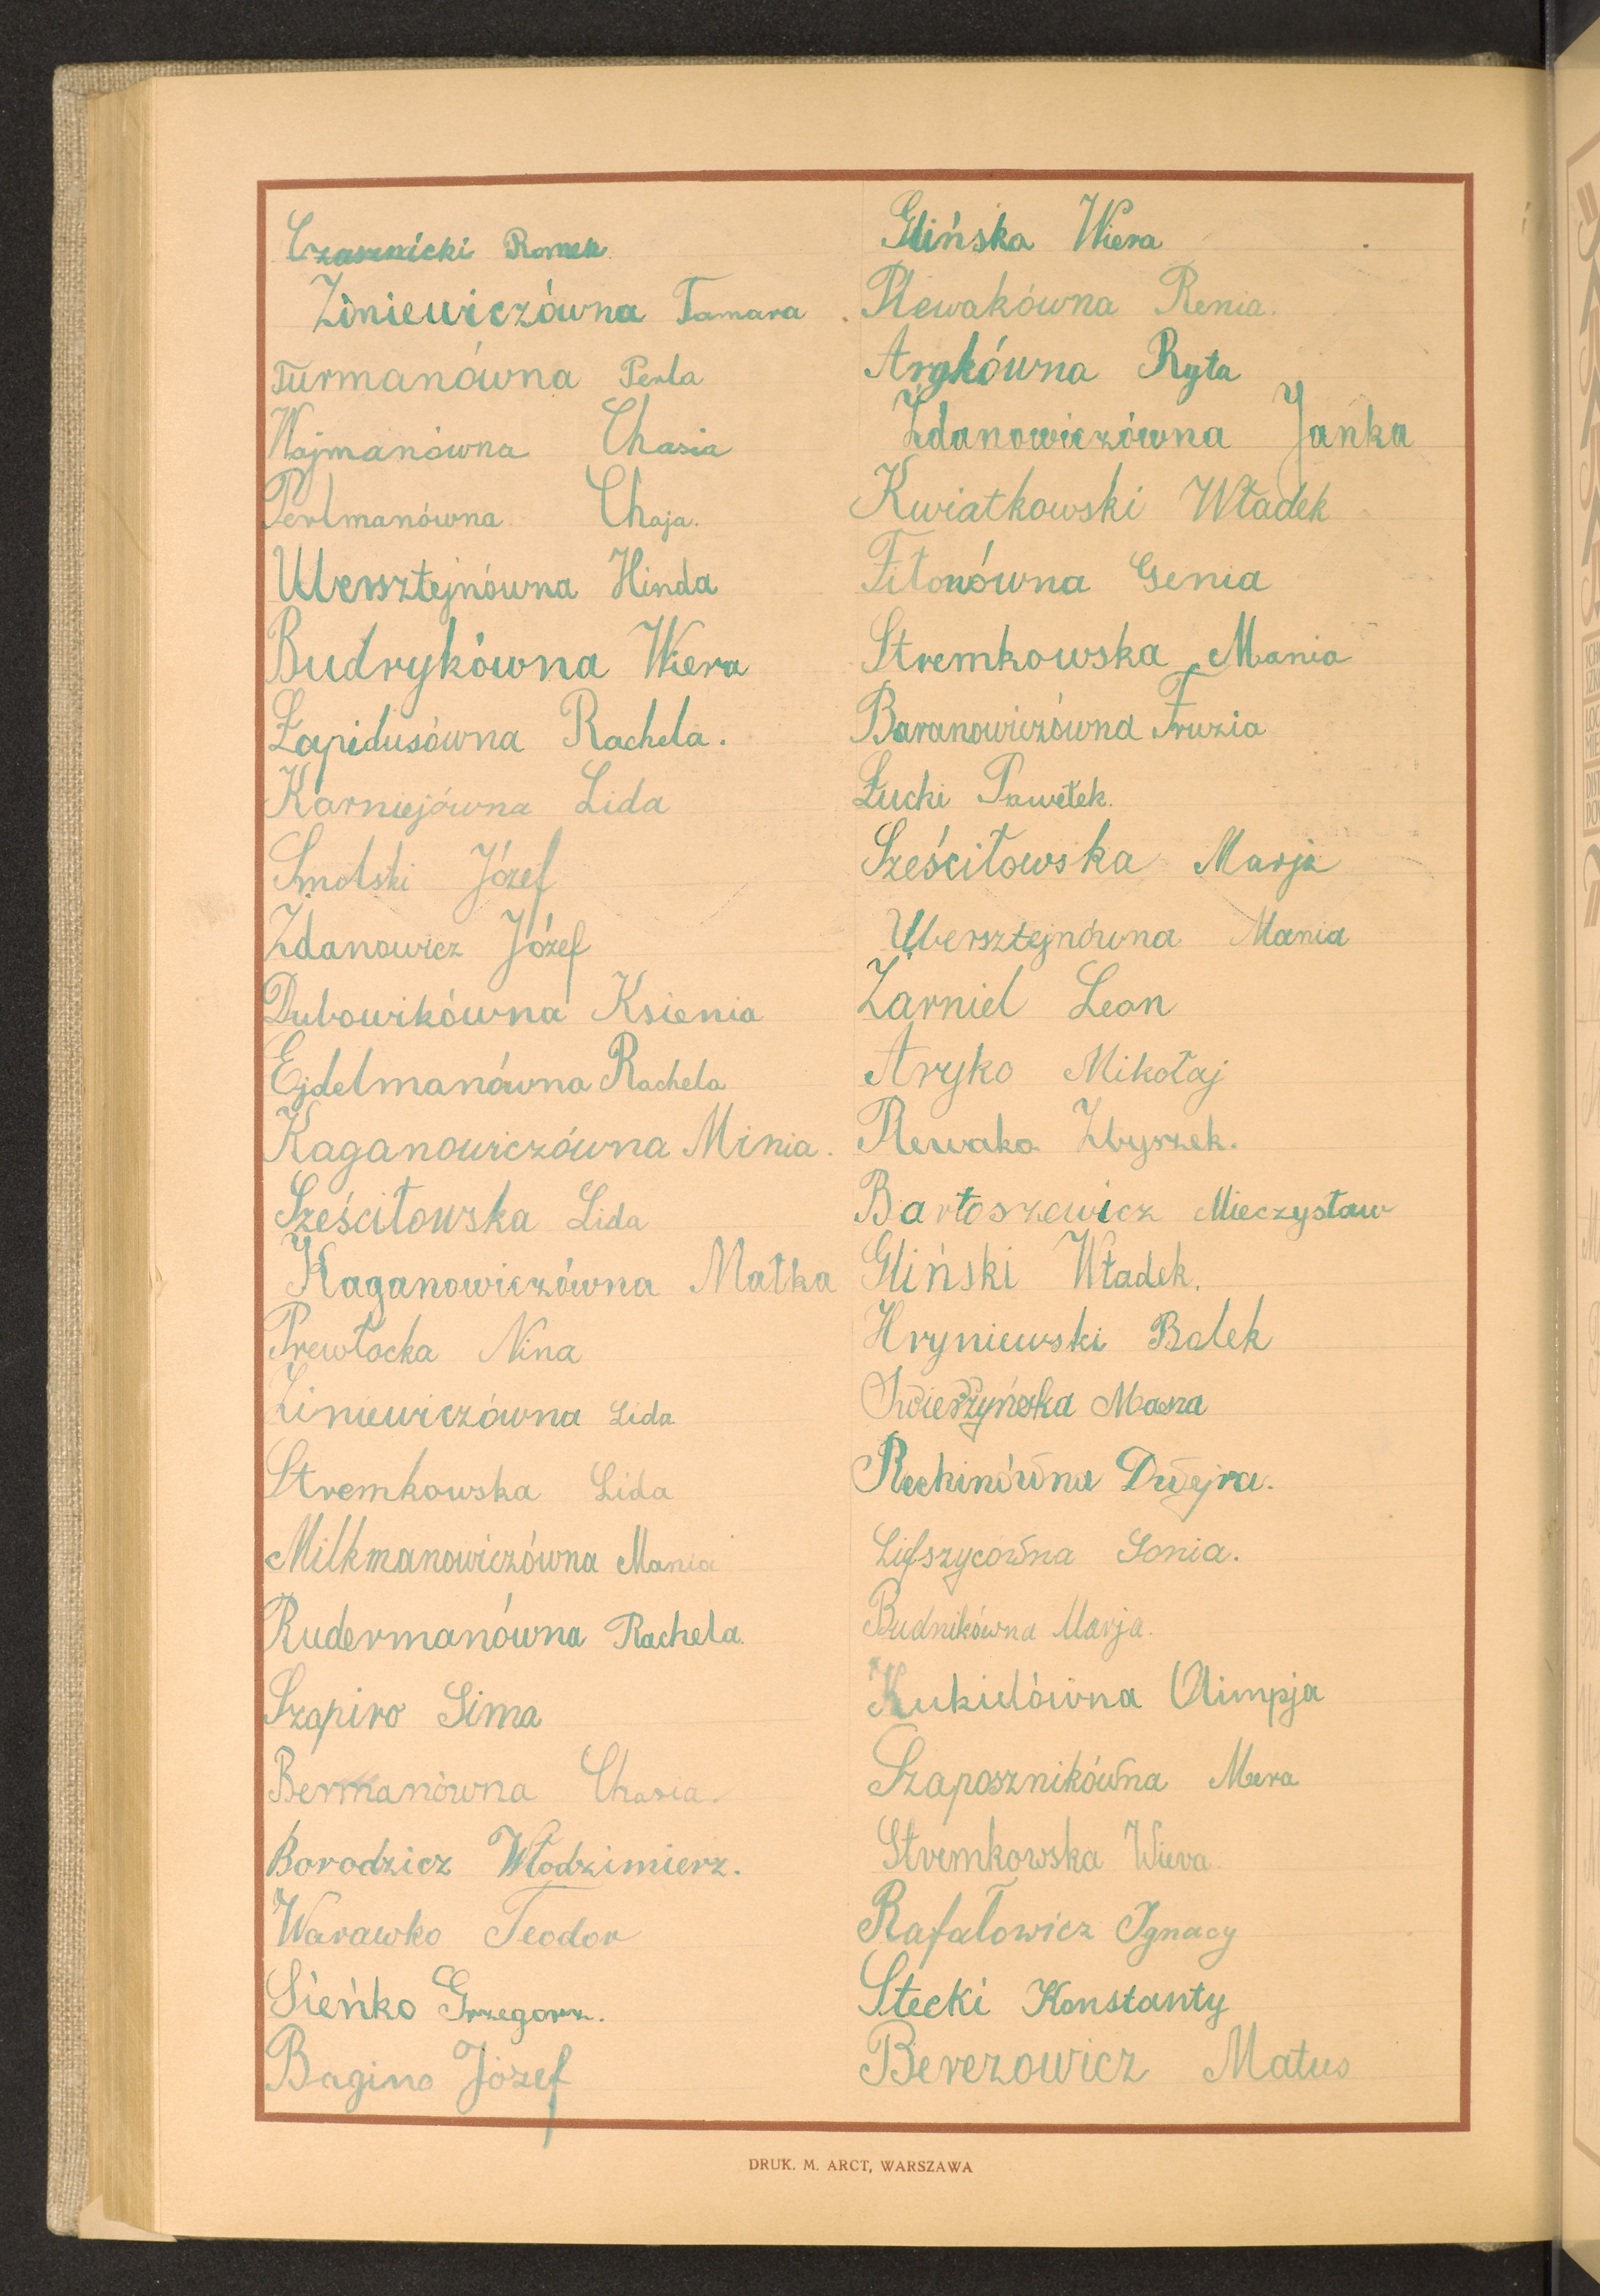 Czarnicki Romek
Ziniewiczówna Tamara
Turmanówna Perla
Wajmanówna Chasia
Perlmanówna Chaja.
Ubersztejnówna Hinda
Budrykówna Wiera
Łapidusówna Rachela.
Karniejówna Lida
Smolski Józef
Żdanowicz Józef
Dubowikówna Ksienia
Ejdelmanówna Rachela
Kaganowiczówna Minia.
Sześciłowska Lida
Kaganowiczówna Małka
Prewłocka Nina
Ziniewiczówna Lida
Stremkowska Lida
Milkmanowiczówna Mania
Rudermanówna Rachela.
Szapiro Sima
Bermanówna Chasia.
Borodzicz Włodzimierz.
Warawko Teodor
Sieńko Grzegorz.
Bagino Józef
Glińska Wiera
Plewakówna Renia.
Arykówna Ryta
Żdanowiczówna Janka
Kwiatkowski Władek
Fitonówna Genia
Stremkowska Mania
Baranowiczówna Fruzia
Łucki Pawełek.
Sześciłowska Marja
Ubersztejnówna Mania
Żarniel Leon
Aryko Mikołaj
Plewako Zbyszek.
Bartoszewicz Mieczysław
Gliński Władek.
Hryniewski Bolek
Zwierzyńska Masza
Rechinówna Dwejra.
Lifszycówna Sonia.
Budnikówna Marja.
Kukielówna Olimpja
Szaposznikówna Mera
Stremkowska Wiera
Rafałowicz Ignacy
Stecki Konstanty
Berezowicz Matus
DRUK. M. ARCT, WARSZAWA